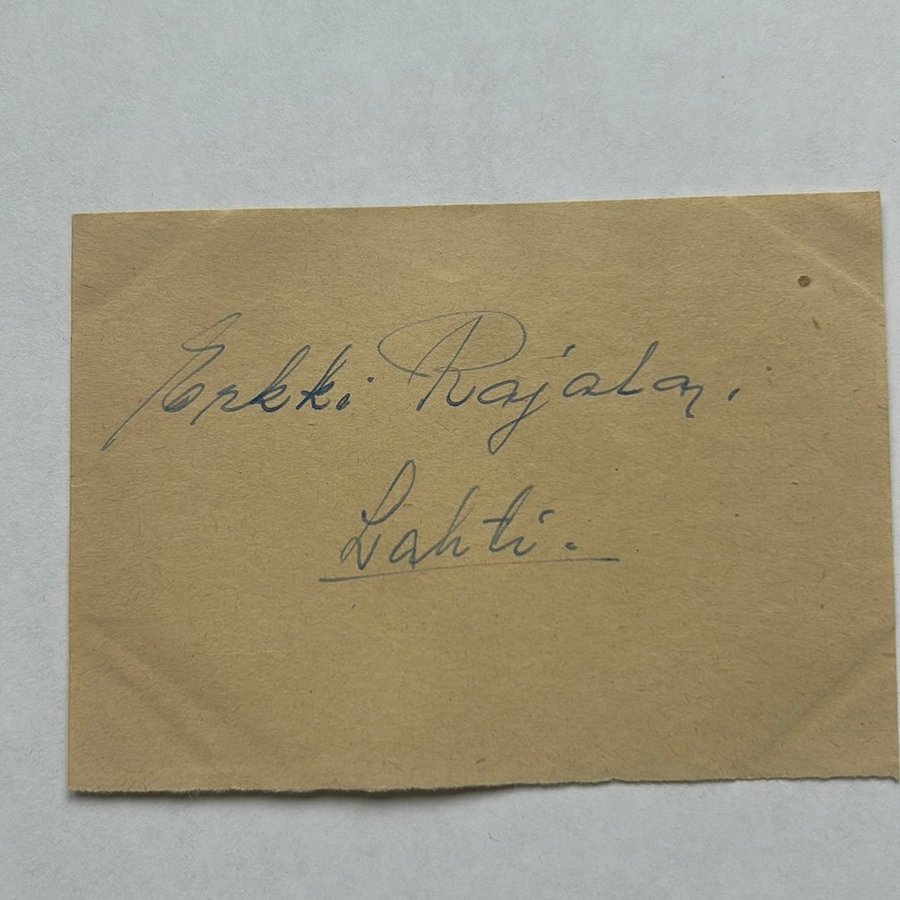 Erkki Rajala.
Lahti.